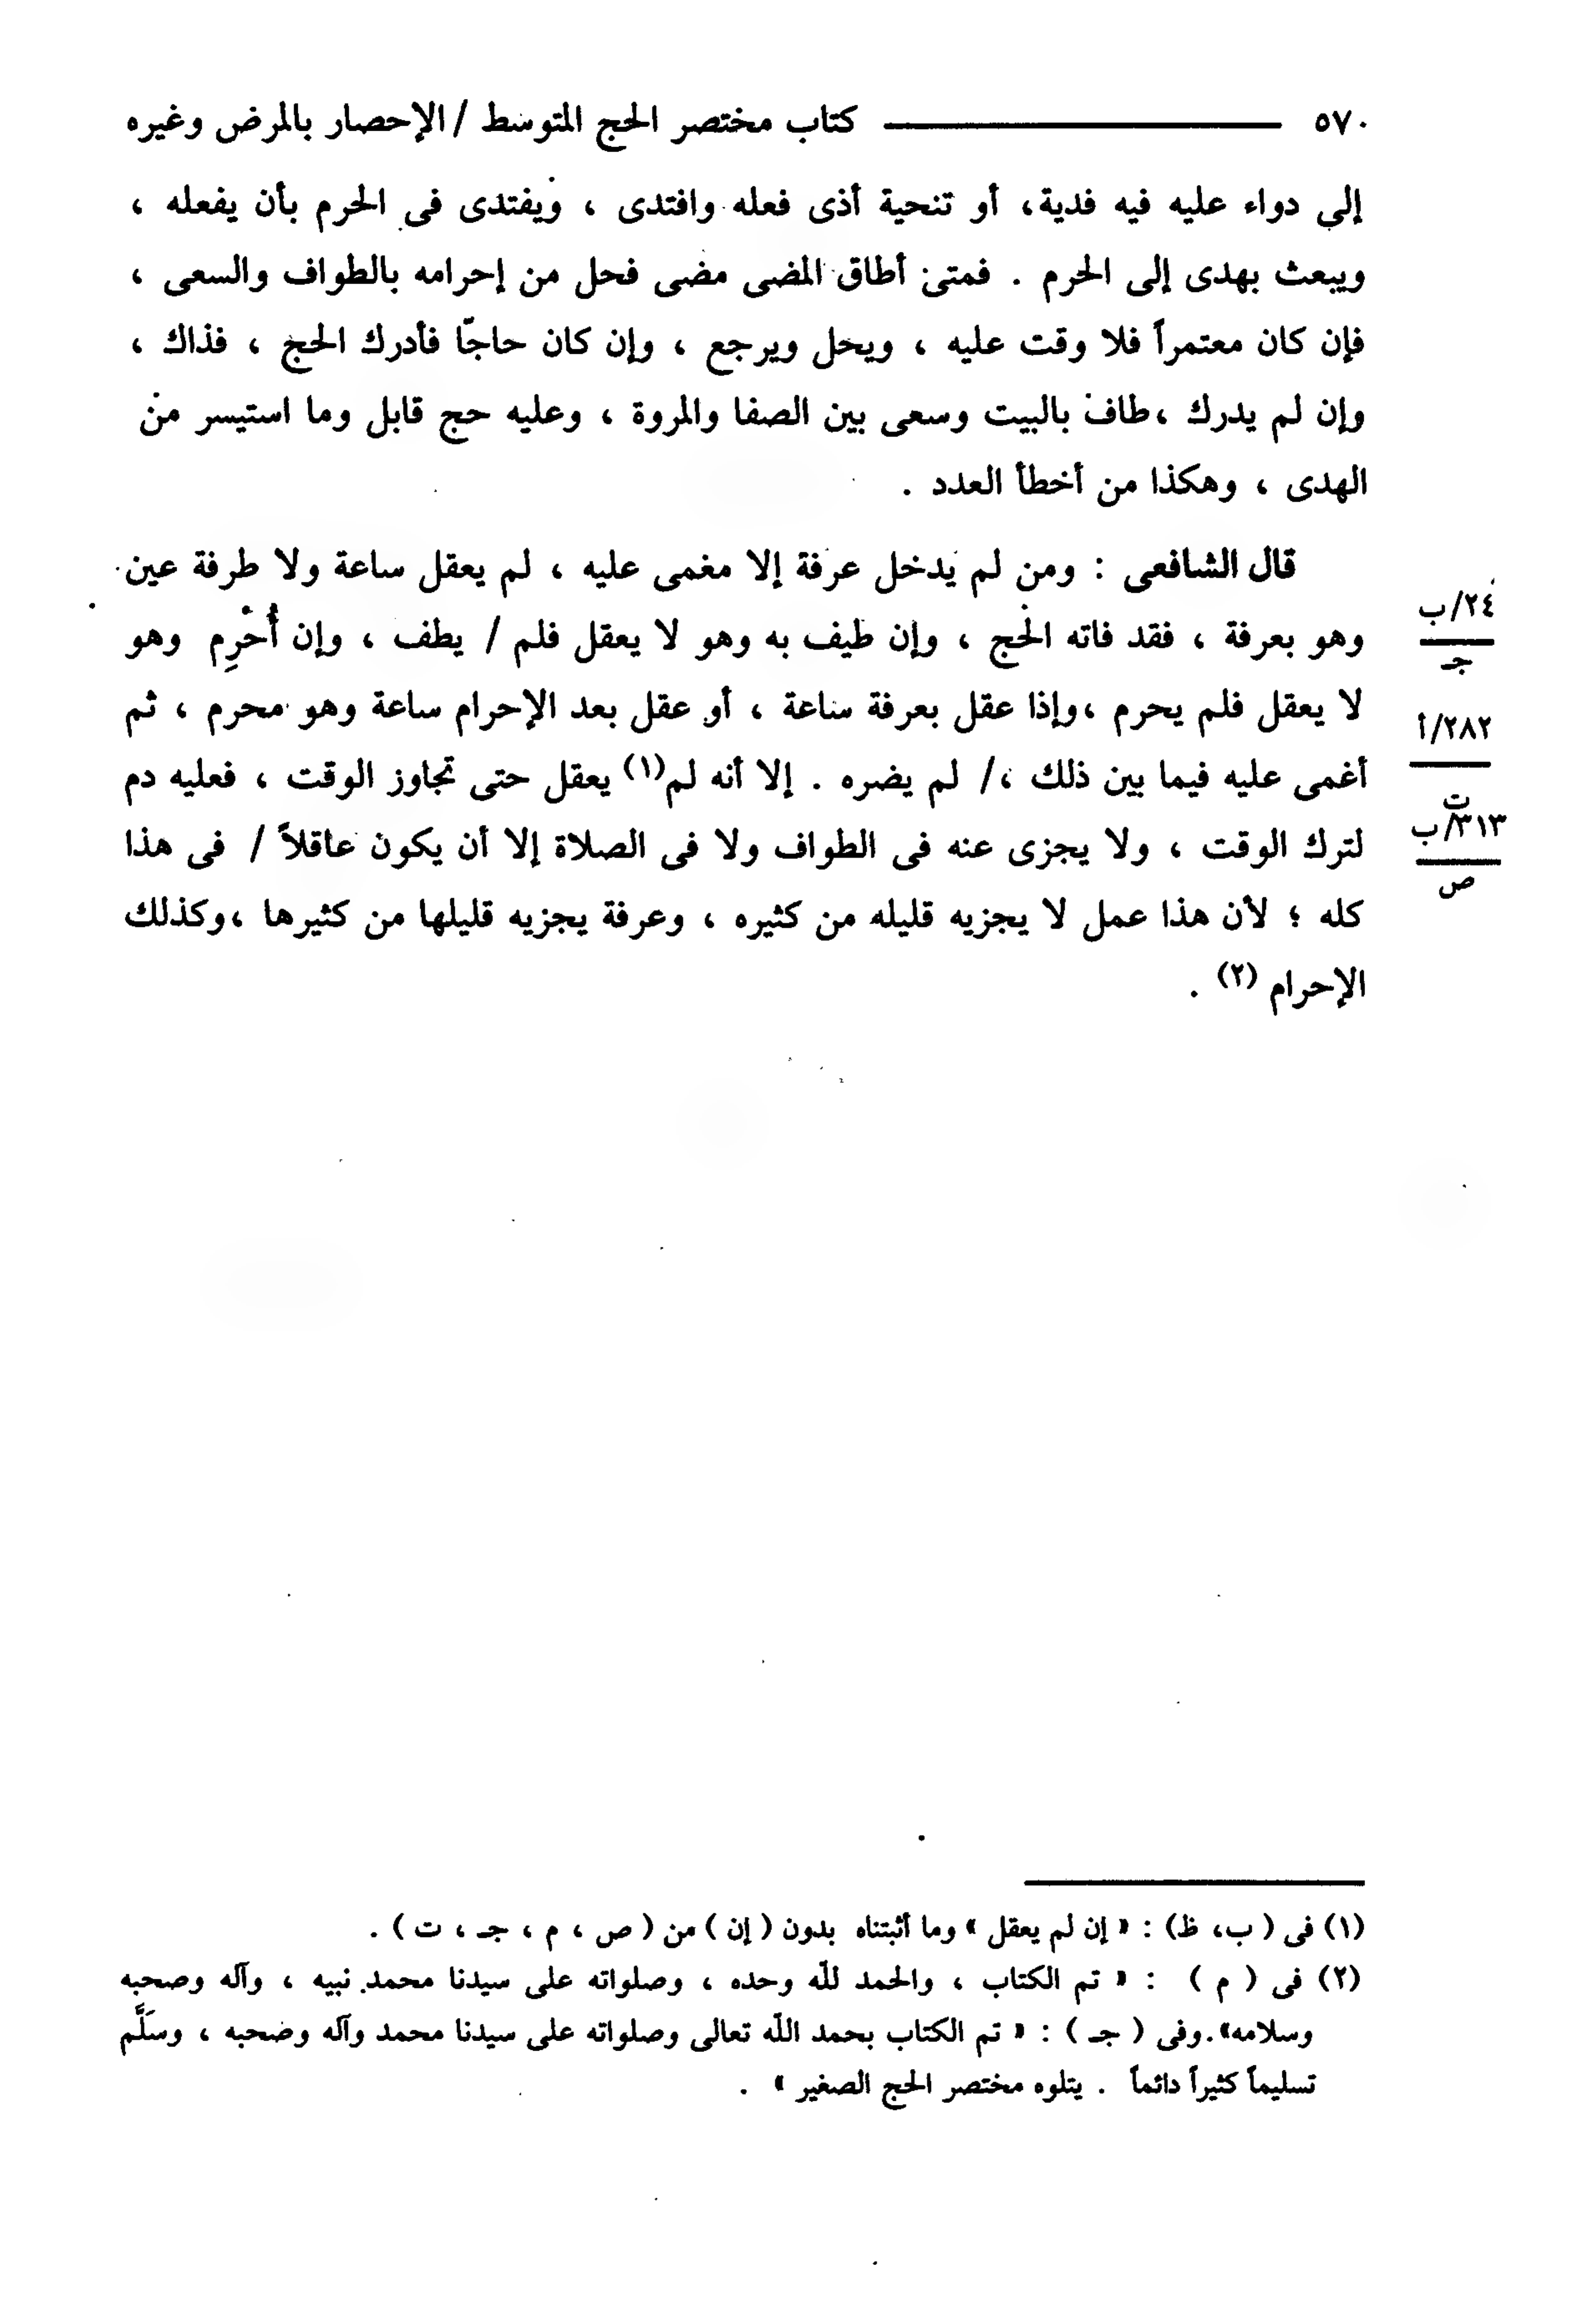 ٥٧٠ كتاب مختصر الحج المتوسط / الإحصار بالمرض وغيره
إلى دواء عليه فيه فدية، أو تنحية أذى فعله وافتدى ، ويفتدى فى الحرم بأن يفعله ،
ويبعث بهدى إلى الحرم . فمتى أطاق المضى مضى فحل من إحرامه بالطواف والسعى ،
فإن كان معتمراً فلا وقت عليه ، ويحل ويرجع ، وإن كان حاجّا فأدرك الحج ، فذاك ،
وإن لم يدرك ،طاف بالبيت وسعى بين الصفا والمروة ، وعليه حج قابل وما استيسر من
الهدى ، وهكذا من أخطأ العدد .
قال الشافعى : ومن لم يدخل عرفة إلا مغمى عليه ، لم يعقل ساعة ولا طرفة عين
وهو بعرفة ، فقد فاته الحج ، وإن طيف به وهو لا يعقل فلم / يطف ، وإن أُحْرِم وهو
٢٤/ب
جـ
لا يعقل فلم يحرم ،وإذا عقل بعرفة ساعة ، أو عقل بعد الإحرام ساعة وهو محرم ، ثم
٢٨٢/أ
ت
أغمى عليه فيما بين ذلك ،/ لم يضره . إلا أنه لم(١) يعقل حتى تجاوز الوقت ، فعليه دم
لترك الوقت ، ولا يجزى عنه فى الطواف ولا فى الصلاة إلا أن يكون عاقلاً / فى هذا
٣١٣/ب
ص
كله ؛ لأن هذا عمل لا يجزيه قليله من كثيره ، وعرفة يجزيه قليلها من كثيرها ،وكذلك
الإحرام (٢) .
(١) فى ( ب، ظ) : « إن لم يعقل » وما أثبتناه بدون ( إن ) من ( ص ، م ، جـ ، ت ) .
(٢) فى ( م ) : « تم الكتاب ، والحمد لله وحده ، وصلواته على سيدنا محمد نبيه ، وآله وصحبه
وسلامه».وفى ( جـ ) : « تم الكتاب بحمد الله تعالى وصلواته على سيدنا محمد وآله وصحبه ، وسَلَّم
تسليماً كثيراً دائماً . يتلوه مختصر الحج الصغير » .